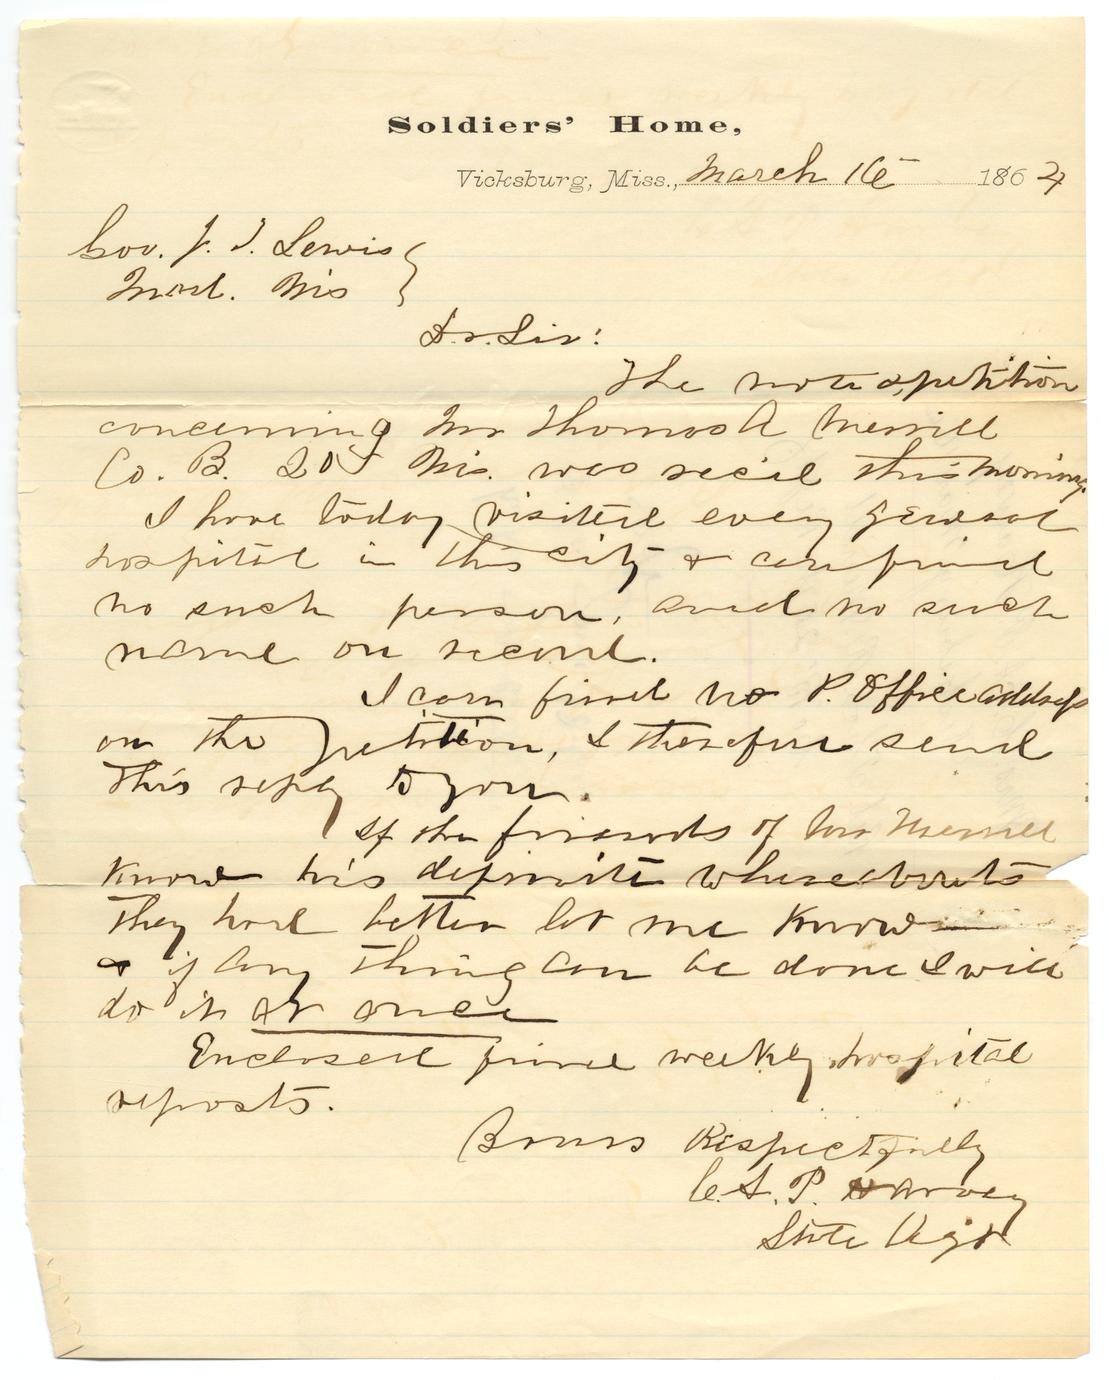 Soldiers' Home,
Vicksburg, Miss., March 16 1864
Gov. J. T. Lewis
Mad. Wis
Dr. Sir:
The note & petition
concerning Mr Thomas A Merrill
Co. B. 20 Wis. was rec'd this morning.
I have today visited every general
hospital in this city & can find
no such person, and no such
name on record.
I can find no P. Office address
on the petition, I therefore send
this reply to you.
If the friends of Mr Merrill
know his definite whereabouts
they had better let me know
& if any thing can be done I will
do it at once
Enclosed find weekly hospital
reports.
Yours Respectfully
C. A. P. Harvey
State Agt